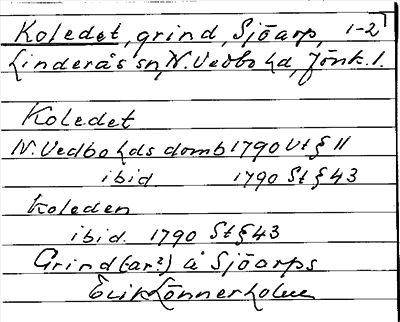 Koledet, grind, Sjöarp, 1-2
Linderås sn, N. Vedbo hd, Jönk. l.
Koledet
N. Vedbo hds domb 1790 Vt § 11
ibid 1790 St § 43
Koleden
ibid. 1790 St § 43
Grind(ar?) å Sjöarps
Erik Lönnerholm